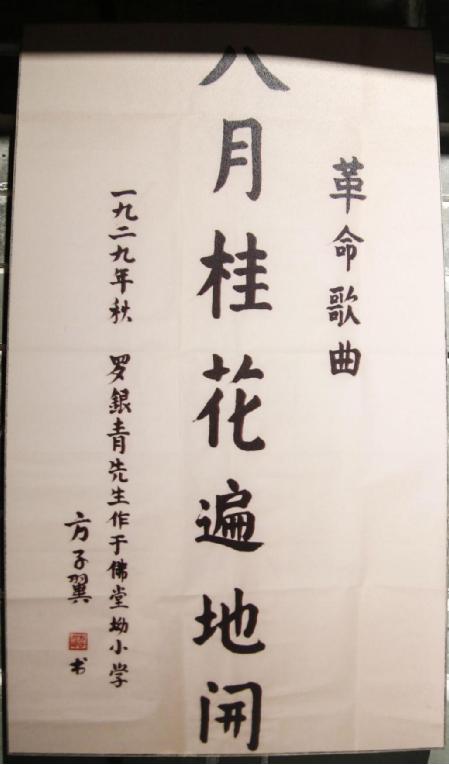 革命歌曲
八月桂花遍地开
一九二九年秋 罗銀青先生作于佛堂坳小学
方子翼 书